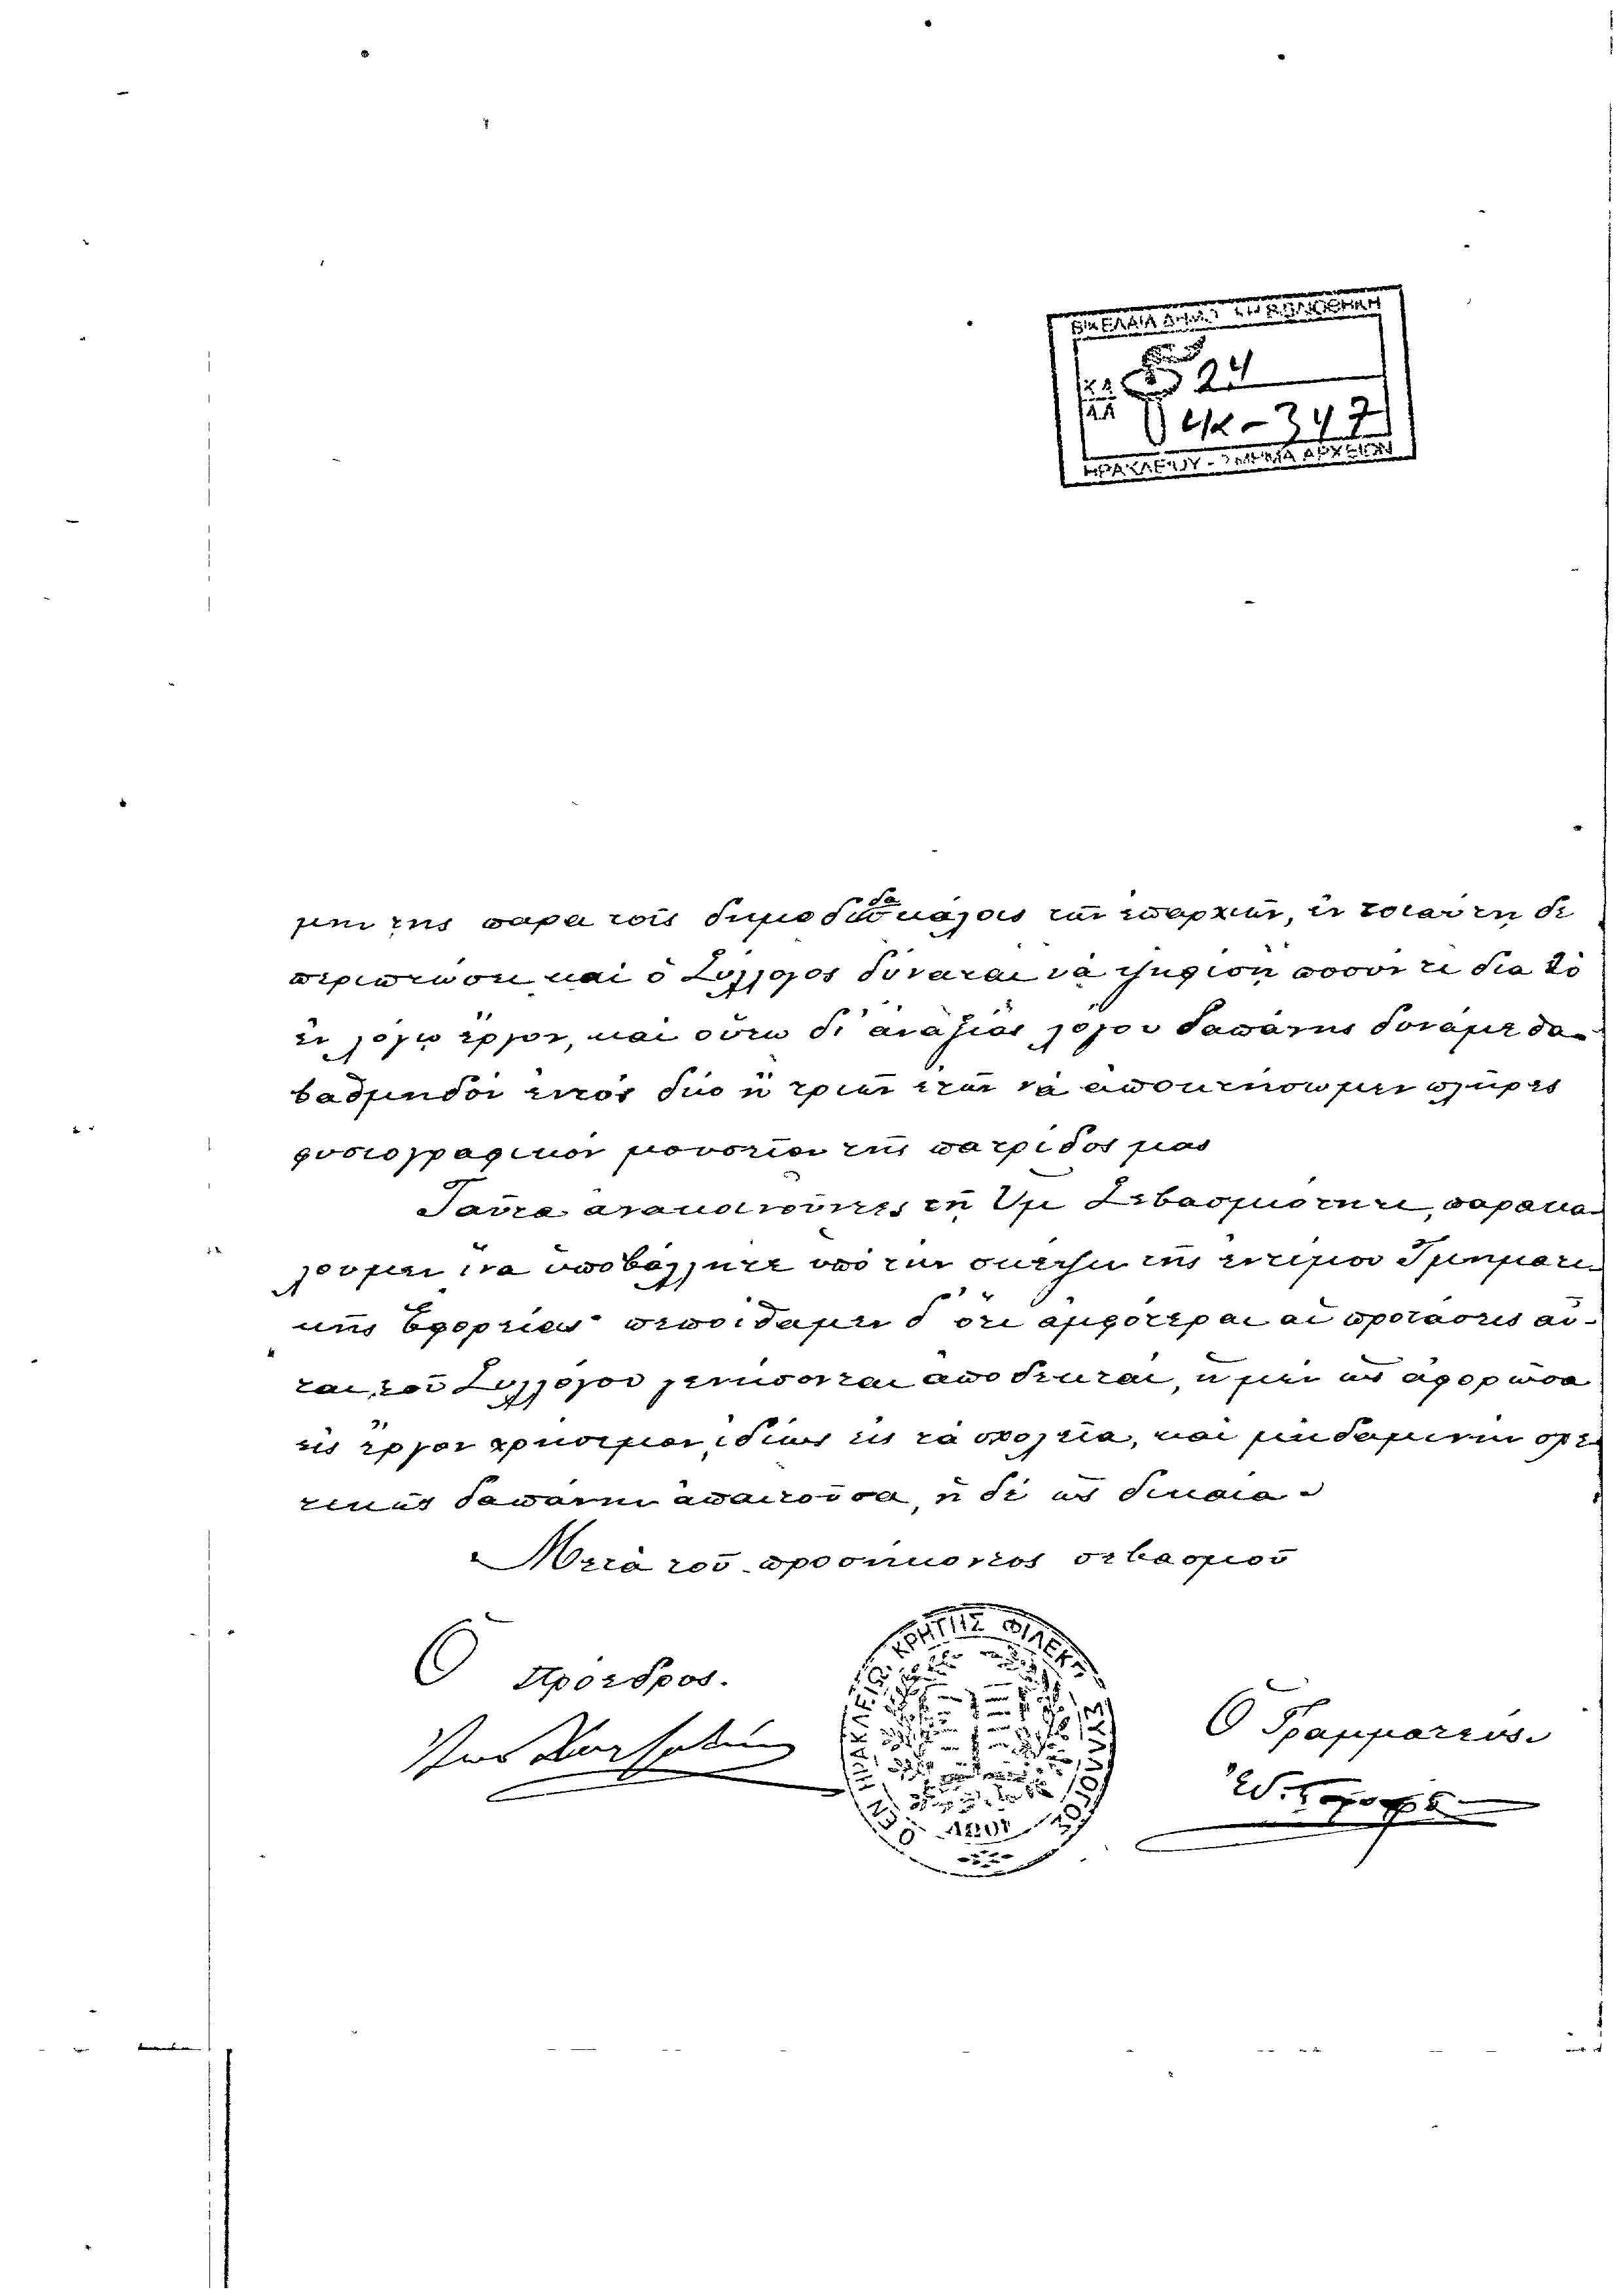 ΒΙΚΕΛΑΙΑ ΔΗΜΟΤΙΚΗ ΒΙΒΛΙΟΘΗΚΗ
24
4κ-347
ΗΡΑΚΛΕΙΟΥ - ΤΜΗΜΑ ΑΡΧΕΙΩΝ
μεν της παρα τοις δημοδιδασκάλοις των επαρχιών, εν τοιαύτη δε
περιπτώσει και ο Σύλλογος δύναται να ψηφίση ποσόν τι δια το
εν λόγω έργον, και ούτω δι' αναξίας λόγου δαπάνης δυνάμεθα
βαθμηδόν εντός δύο ή τριών ετών να αποκτήσωμεν πλήρες
φυσιογραφικόν μουσείον της πατρίδος μας
Ταύτα ανακοινούντες τη Υμ Σεβασμιότητι, παρακα-
λούμεν ίνα υποβάλλητε υπό την σκέψιν της εντίμου Τμηματι-
κής Εφορείας πεποίθαμεν δ' ότι αμφότεραι αι προτάσεις αύ-
ται του Συλλόγου γενήσονται αποδεκταί, η μεν ως αφορώσα
εις έργον χρήσιμον ιδίως εις τα σχολεία, και μηδαμινήν σχε-
τικώς δαπάνην απαιτούσα, η δε ως δικαία
Μετά του προσήκοντος σεβασμού
Ο Πρόεδρος.
Ο Γραμματεύς.
Ο ΕΝ ΗΡΑΚΛΕΙΩ ΚΡΗΤΗΣ ΦΙΛΕΚΠ. ΣΥΛΛΟΓΟΣ